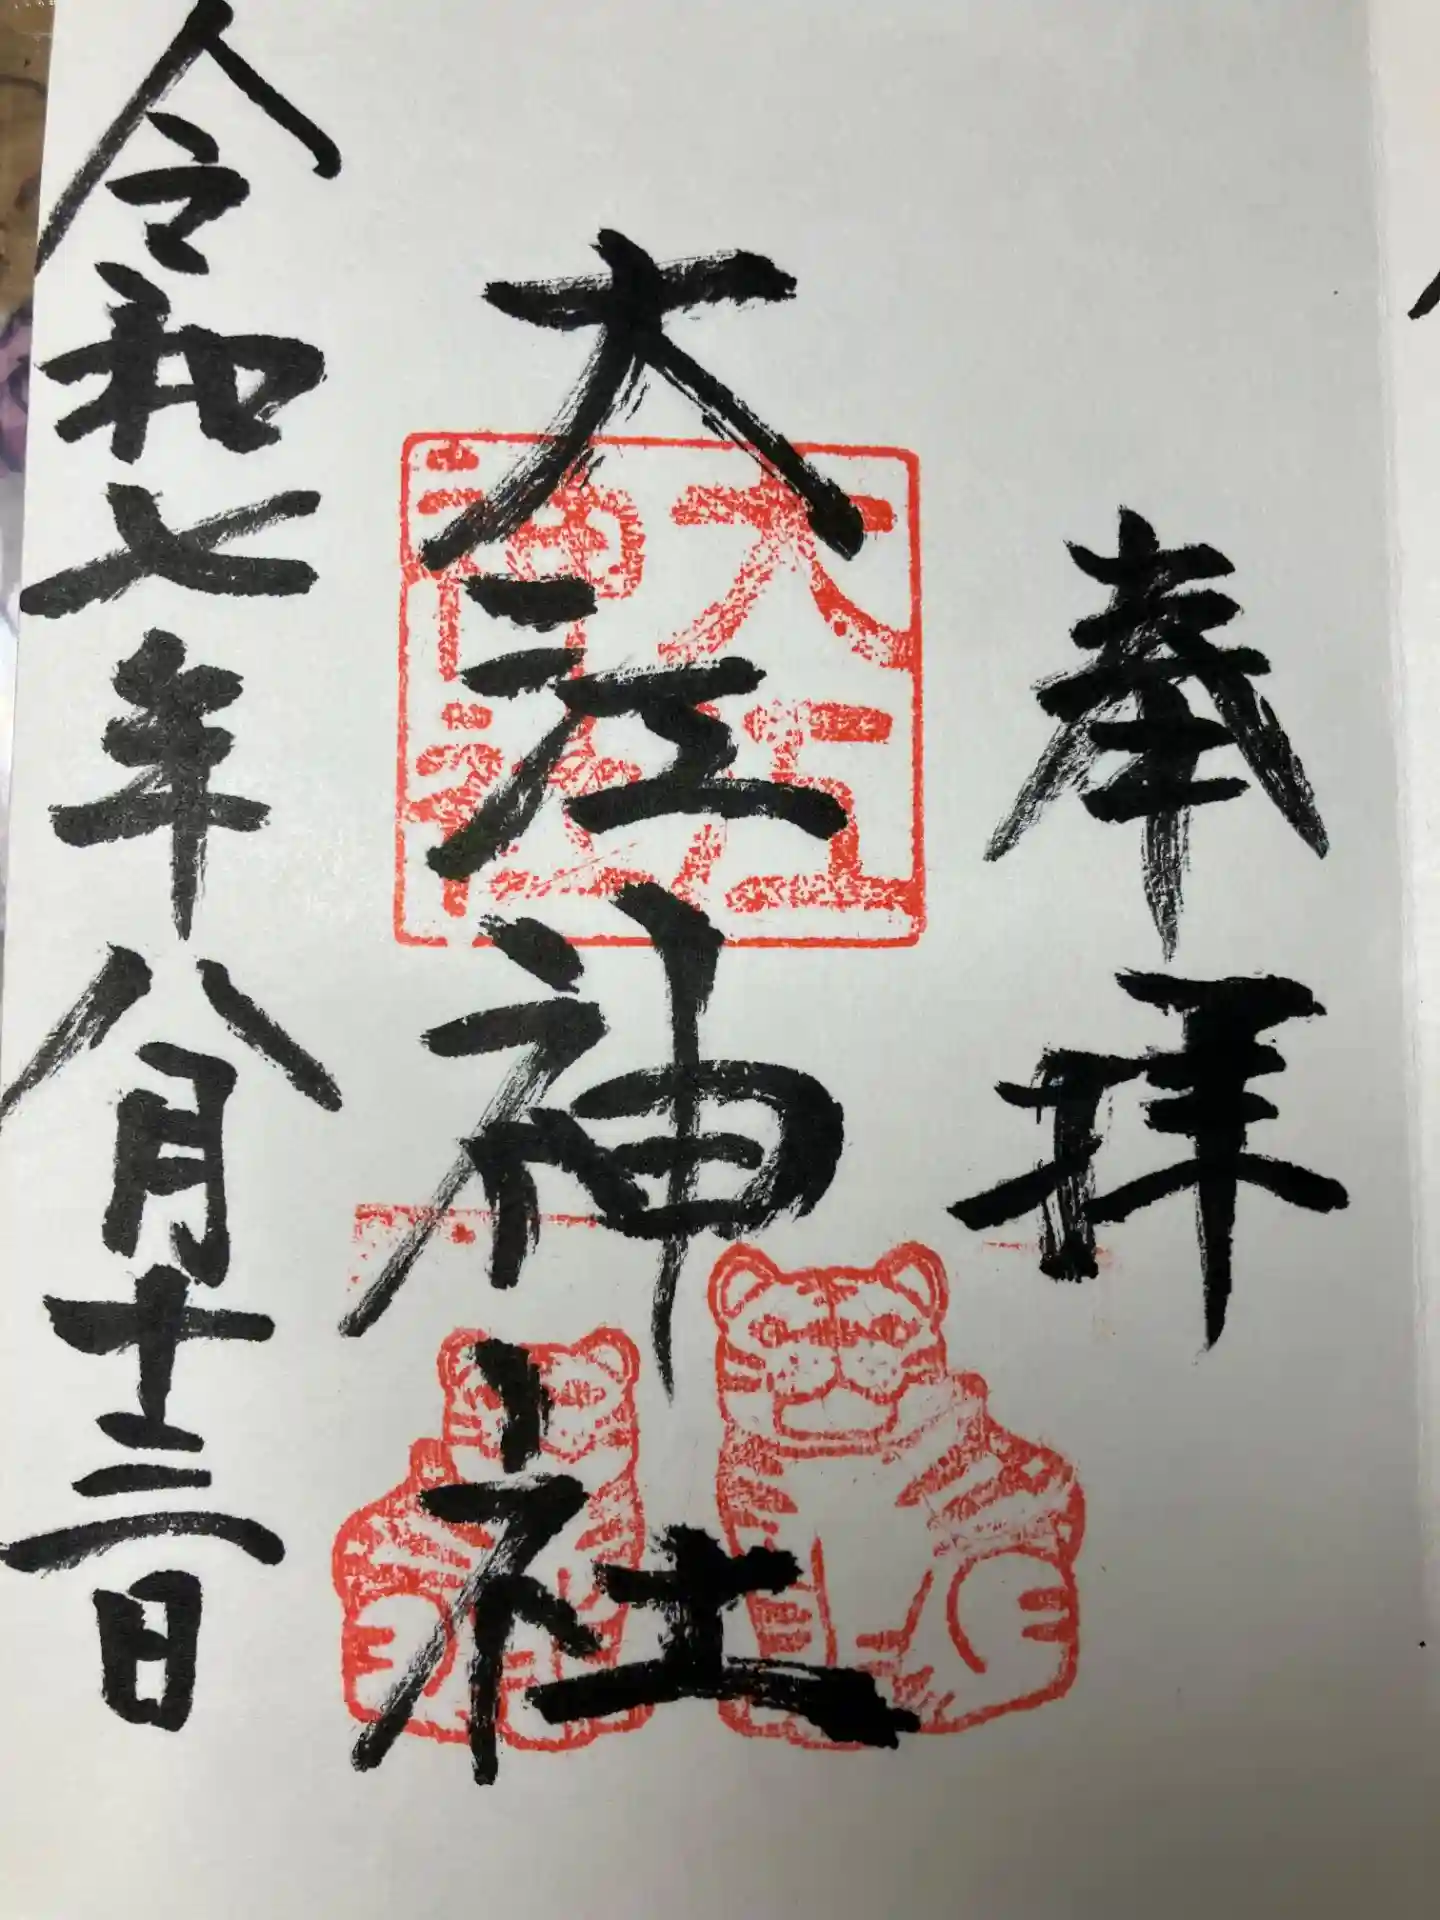 奉拝
大江神社
大江神社
令和七年八月十三日